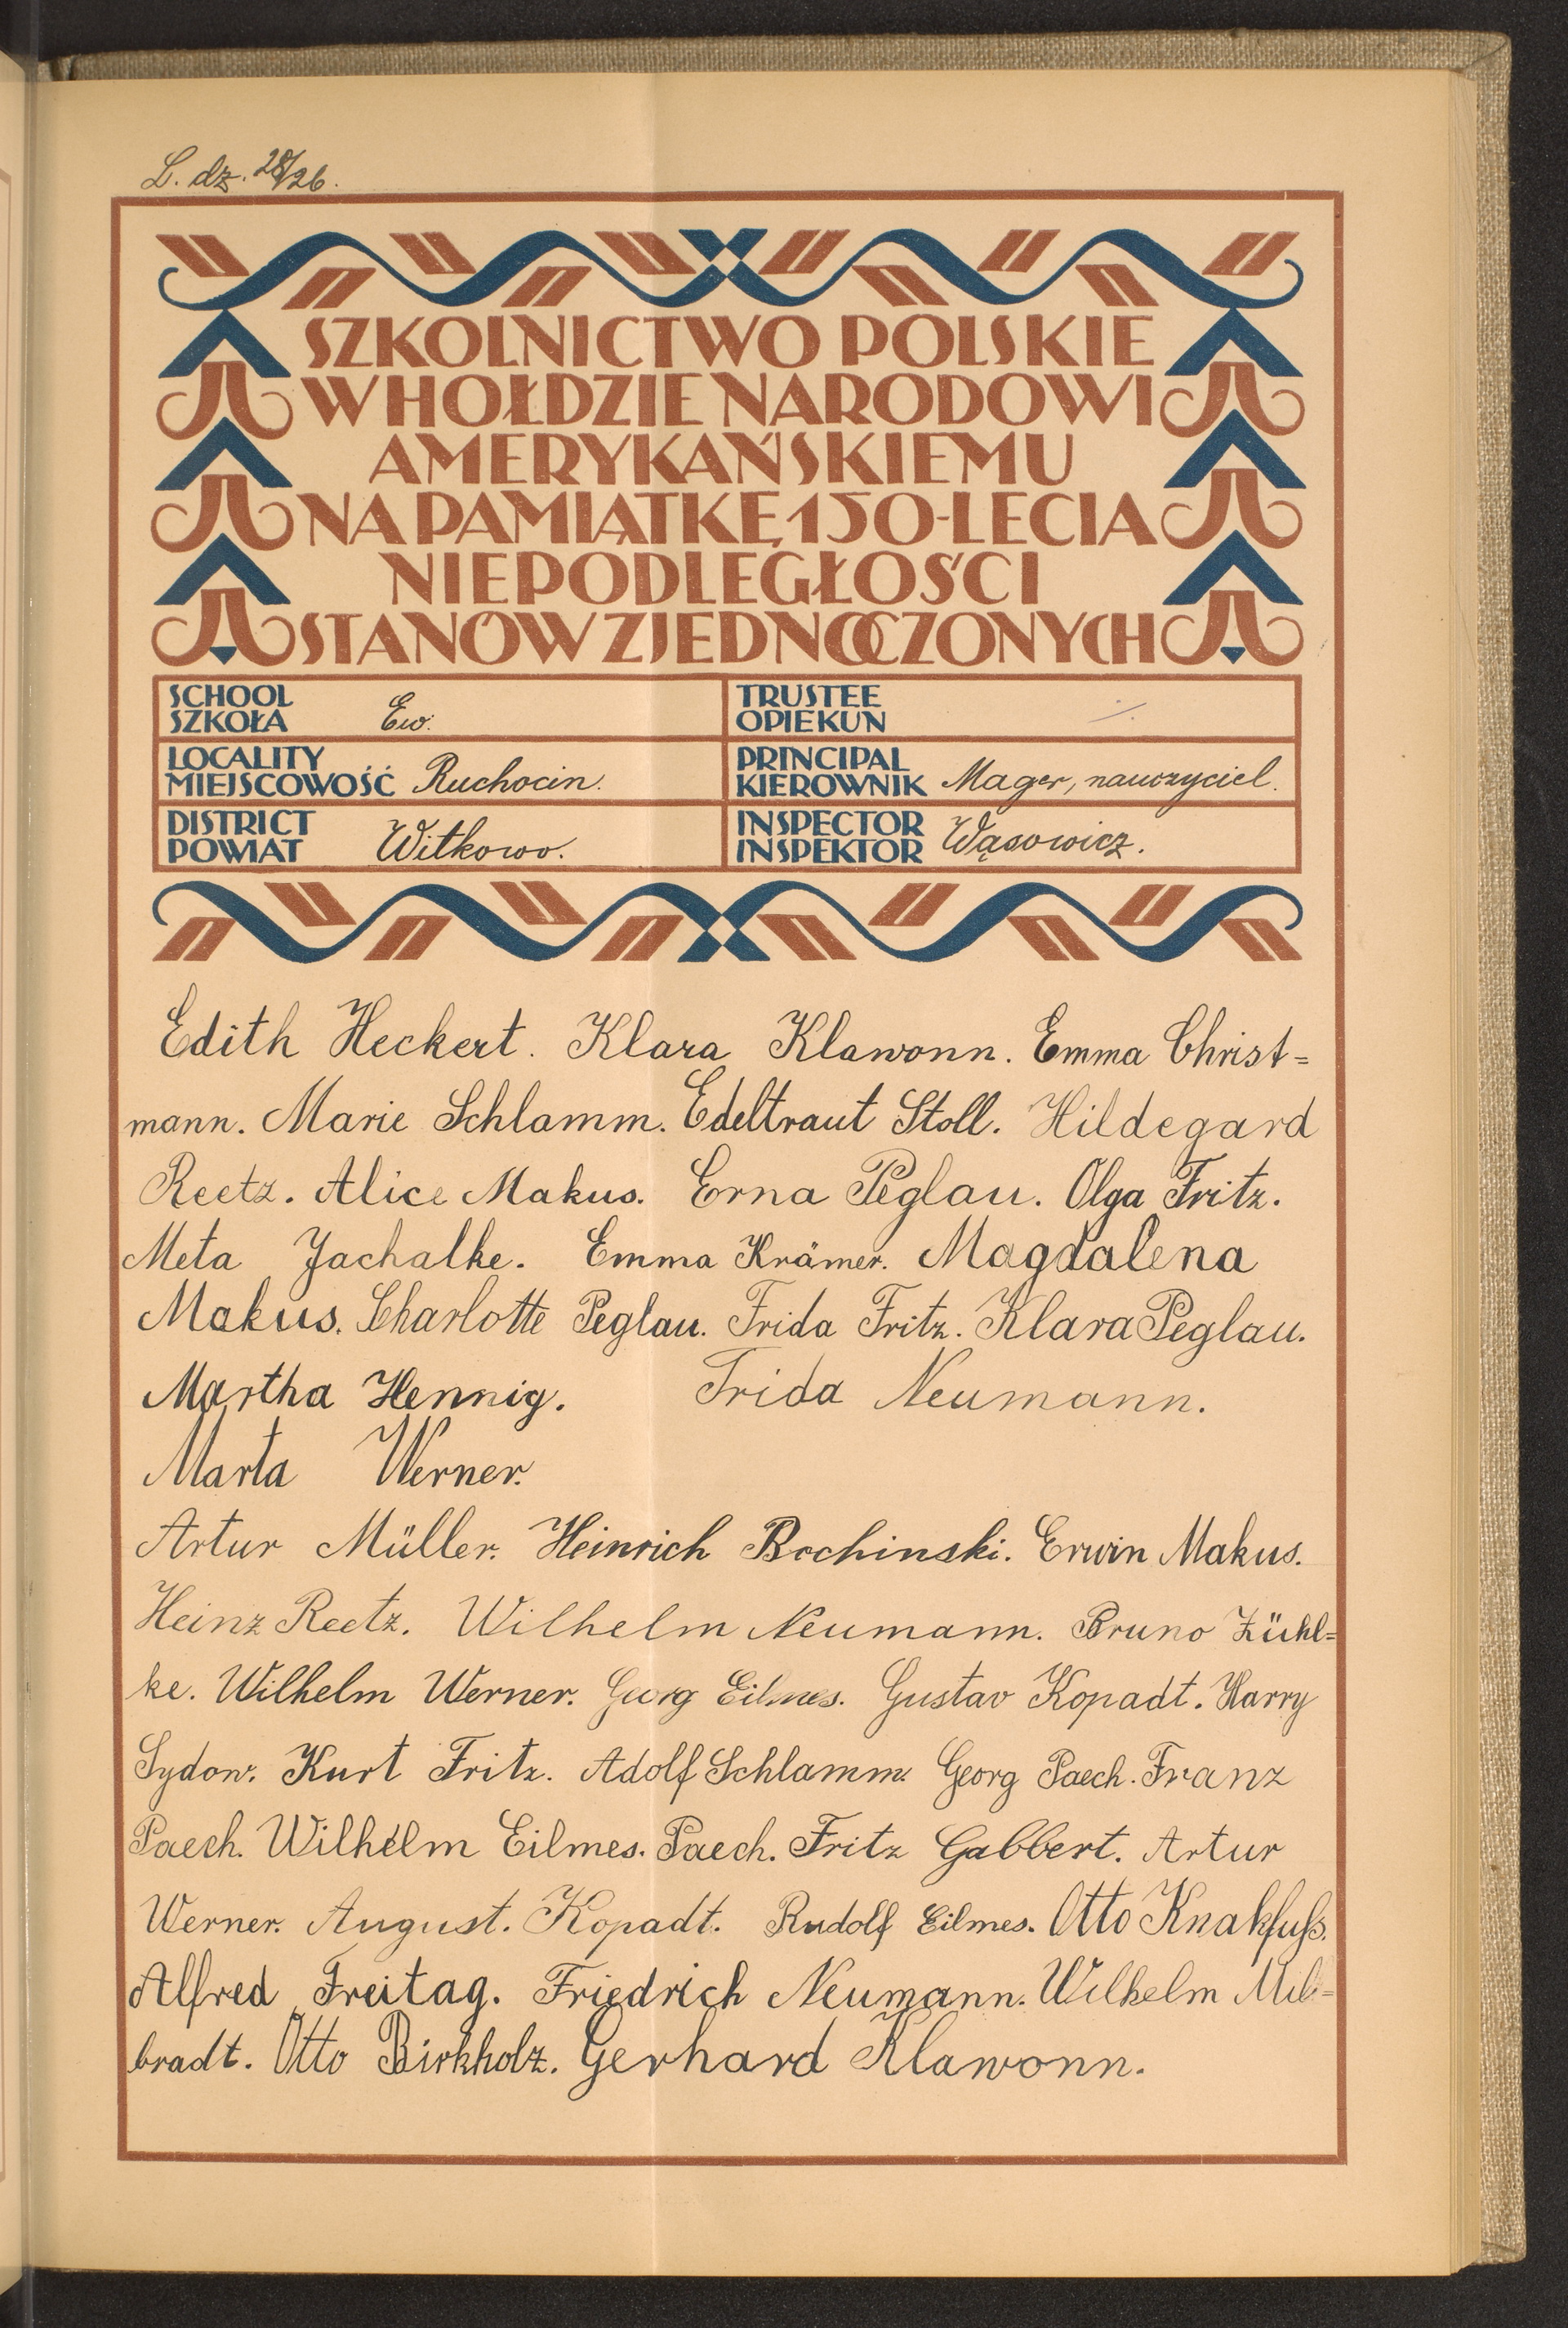 L. dz. 28/26.
SZKOLNICTWO POLSKIE
W HOŁDZIE NARODOWI
AMERYKAŃSKIEMU
NA PAMIĄTKĘ 150-LECIA
NIEPODLEGŁOŚCI
STANÓW ZJEDNOCZONYCH
SCHOOL
SZKOŁA Ew.
TRUSTEE
OPIEKUN
LOCALITY
MIEJSCOWOŚĆ Ruchocin.
PRINCIPAL
KIEROWNIK Mager, nauczyciel.
DISTRICT
POWIAT Witkowo.
INSPECTOR
INSPEKTOR Wąsowicz.
Edith Heckert. Klara Klawonn. Emma Christ=
mann. Marie Schlamm. Edeltraut Stoll. Hildegard
Reetz. Alice Makus. Erna Peglau. Olga Fritz.
Meta Jachalke. Emma Krämer. Magdalena
Makus. Charlotte Peglau. Frida Fritz. Klara Peglau.
Martha Hennig. Frida Neumann.
Marta Werner.
Artur Müller. Heinrich Bochinski. Erwin Makus.
Heinz Reetz. Wilhelm Neumann. Bruno Zühl=
ke. Wilhelm Werner. Georg Eilmes. Gustav Kopadt. Harry
Sydow. Kurt Fritz. Adolf Schlamm. Georg Paech. Franz
Paech. Wilhelm Eilmes. Paech. Fritz Gabbert. Artur
Werner. August. Kopadt. Rudolf Eilmes. Otto Knakfuſs.
Alfred Freitag. Friedrich Neumann. Wilhelm Mil=
bradt. Otto Birkholz. Gerhard Klawonn.